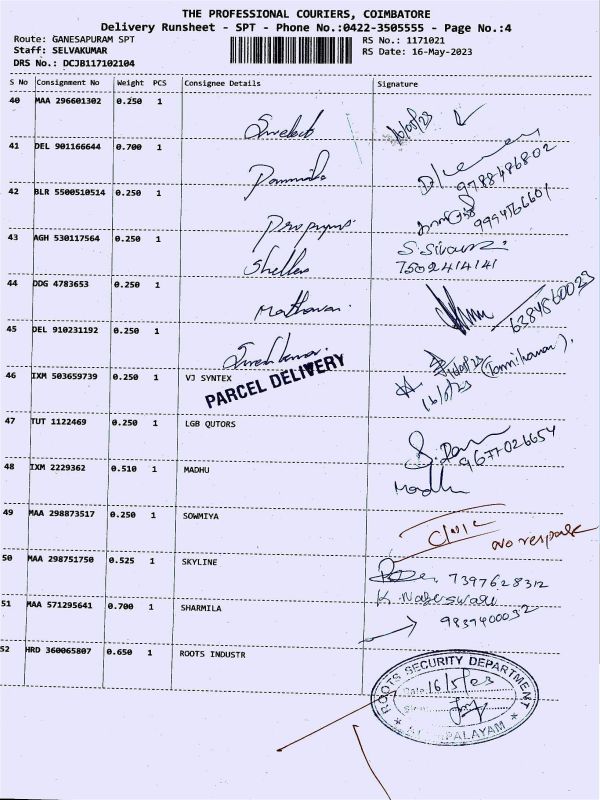 THE PROFESSIONAL COURIERS, COIMBATORE
Delivery Runsheet - SPT - Phone No.:0422-3505555 - Page No.:4
Route: GANESAPURAM SPT
Staff: SELVAKUMAR
DRS No.: DCJB117102104
RS No.: 1171021
RS Date: 16-May-2023
S No Consignment No Weight PCS Consignee Details Signature
40 MAA 296601302 0.250 1
16/05/23
41 DEL 901166644 0.700 1
9788486802
42 BLR 5500510514 0.250 1
43 AGH 530117564 0.250 1
7502414141
44 DDG 4783653 0.250 1
Mathavan.
6384860023
45 DEL 910231192 0.250 1
46 IXM 503659739 0.250 1 VJ SYNTEX
PARCEL DELIVERY
16/5/23
47 TUT 1122469 0.250 1 LGB QUTORS
9677026654
48 IXM 2229362 0.510 1 MADHU
Madhu
49 MAA 298873517 0.250 1 SOWMIYA
no response
50 MAA 298751750 0.525 1 SKYLINE
7397628312
51 MAA 571295641 0.700 1 SHARMILA
K. Nageswari
9837400032
52 HRD 360065807 0.650 1 ROOTS INDUSTR
ROOTS SECURITY DEPARTMENT
Date 16/5/23
PALAYAM